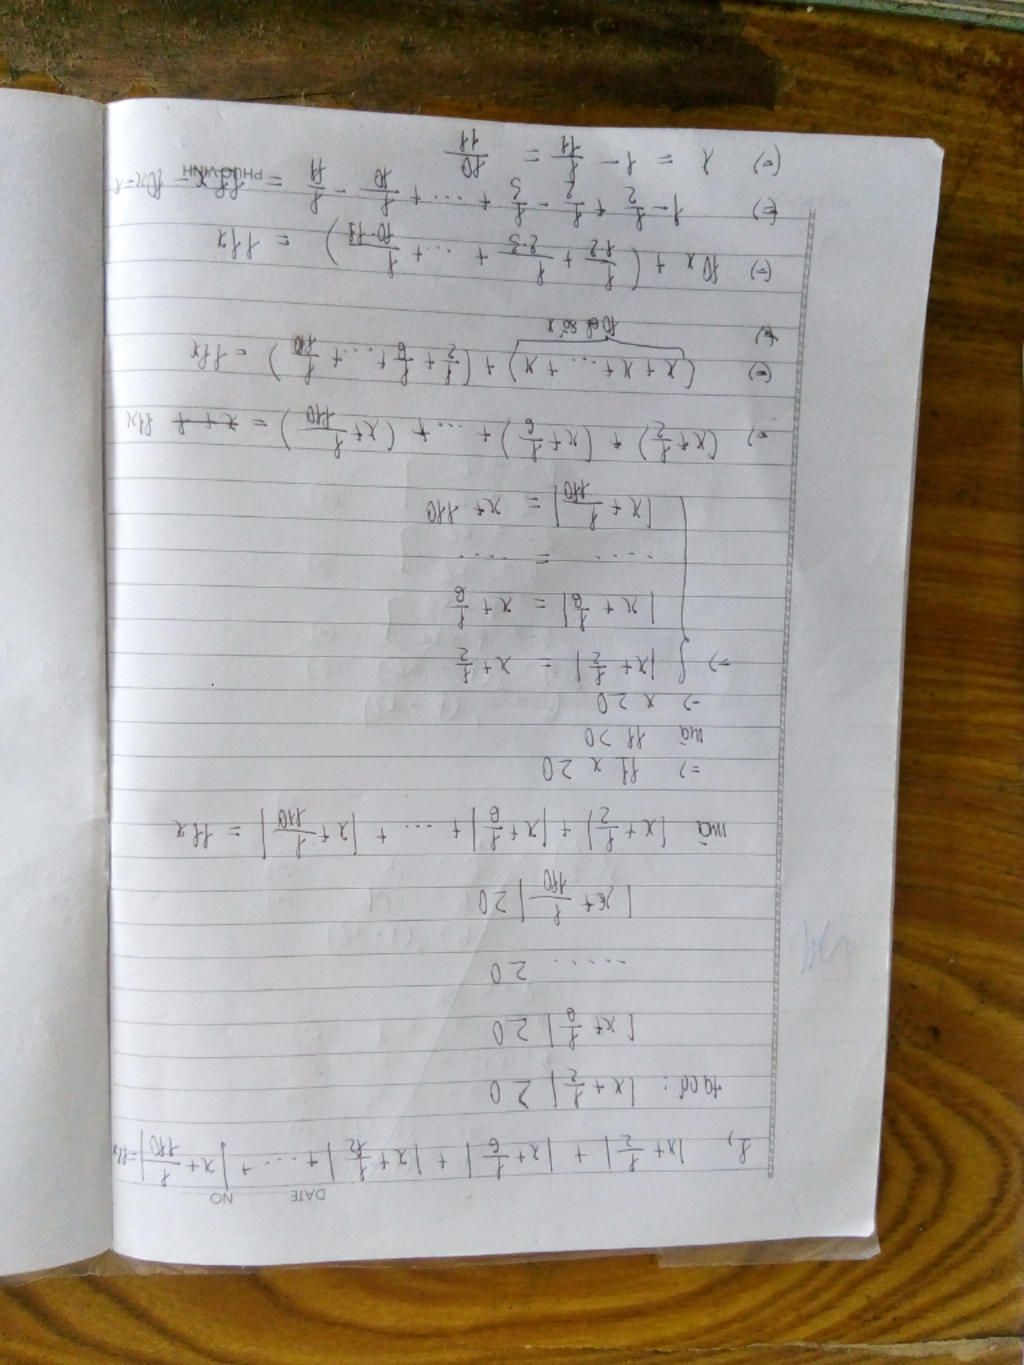 DATE NO
1, |x+1/2| + |x+1/6| + |x+1/12| + .... + |x+1/110| = 11x
ta có: |x+1/2| ≥ 0
|x+1/6| ≥ 0
..... ≥ 0
|x+1/110| ≥ 0
mà |x+1/2| + |x+1/6| + ... + |x+1/110| = 11x
=> 11x ≥ 0
mà 11 > 0
-> x ≥ 0
=> { |x+1/2| = x+1/2
|x+1/6| = x+1/6
.... = ....
|x+1/110| = x+110
=) (x+1/2) + (x+1/6) + .... + (x+1/110) = 11x
(=) (x+x+....+x) + (1/2+1/6+....+1/110) = 11x
10 số x
(=) 10x + (1/1.2 + 1/2.3 + ... + 1/10.11) = 11x
(=) 1-1/2+1/2-1/3+....+1/10-1/11 = 11x - 10x = x
PHUC VINH
(=) x = 1 - 1/11 = 10/11